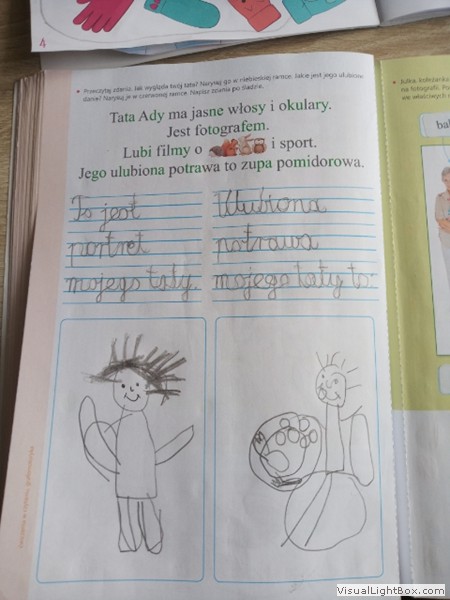 4
• Przeczytaj zdania. Jak wygląda twój tata? Narysuj go w niebieskiej ramce. Jakie jest jego ulubione
danie? Narysuj je w czerwonej ramce. Napisz zdania po śladzie.
Tata Ady ma jasne włosy i okulary.
Jest fotografem.
Lubi filmy o i sport.
Jego ulubiona potrawa to zupa pomidorowa.
To jest
portret
mojego taty.
Ulubiona
potrawa
mojego taty to:
• Julka, koleżanka
na fotografii.
we właściwych
bab
VisualLightBox.com